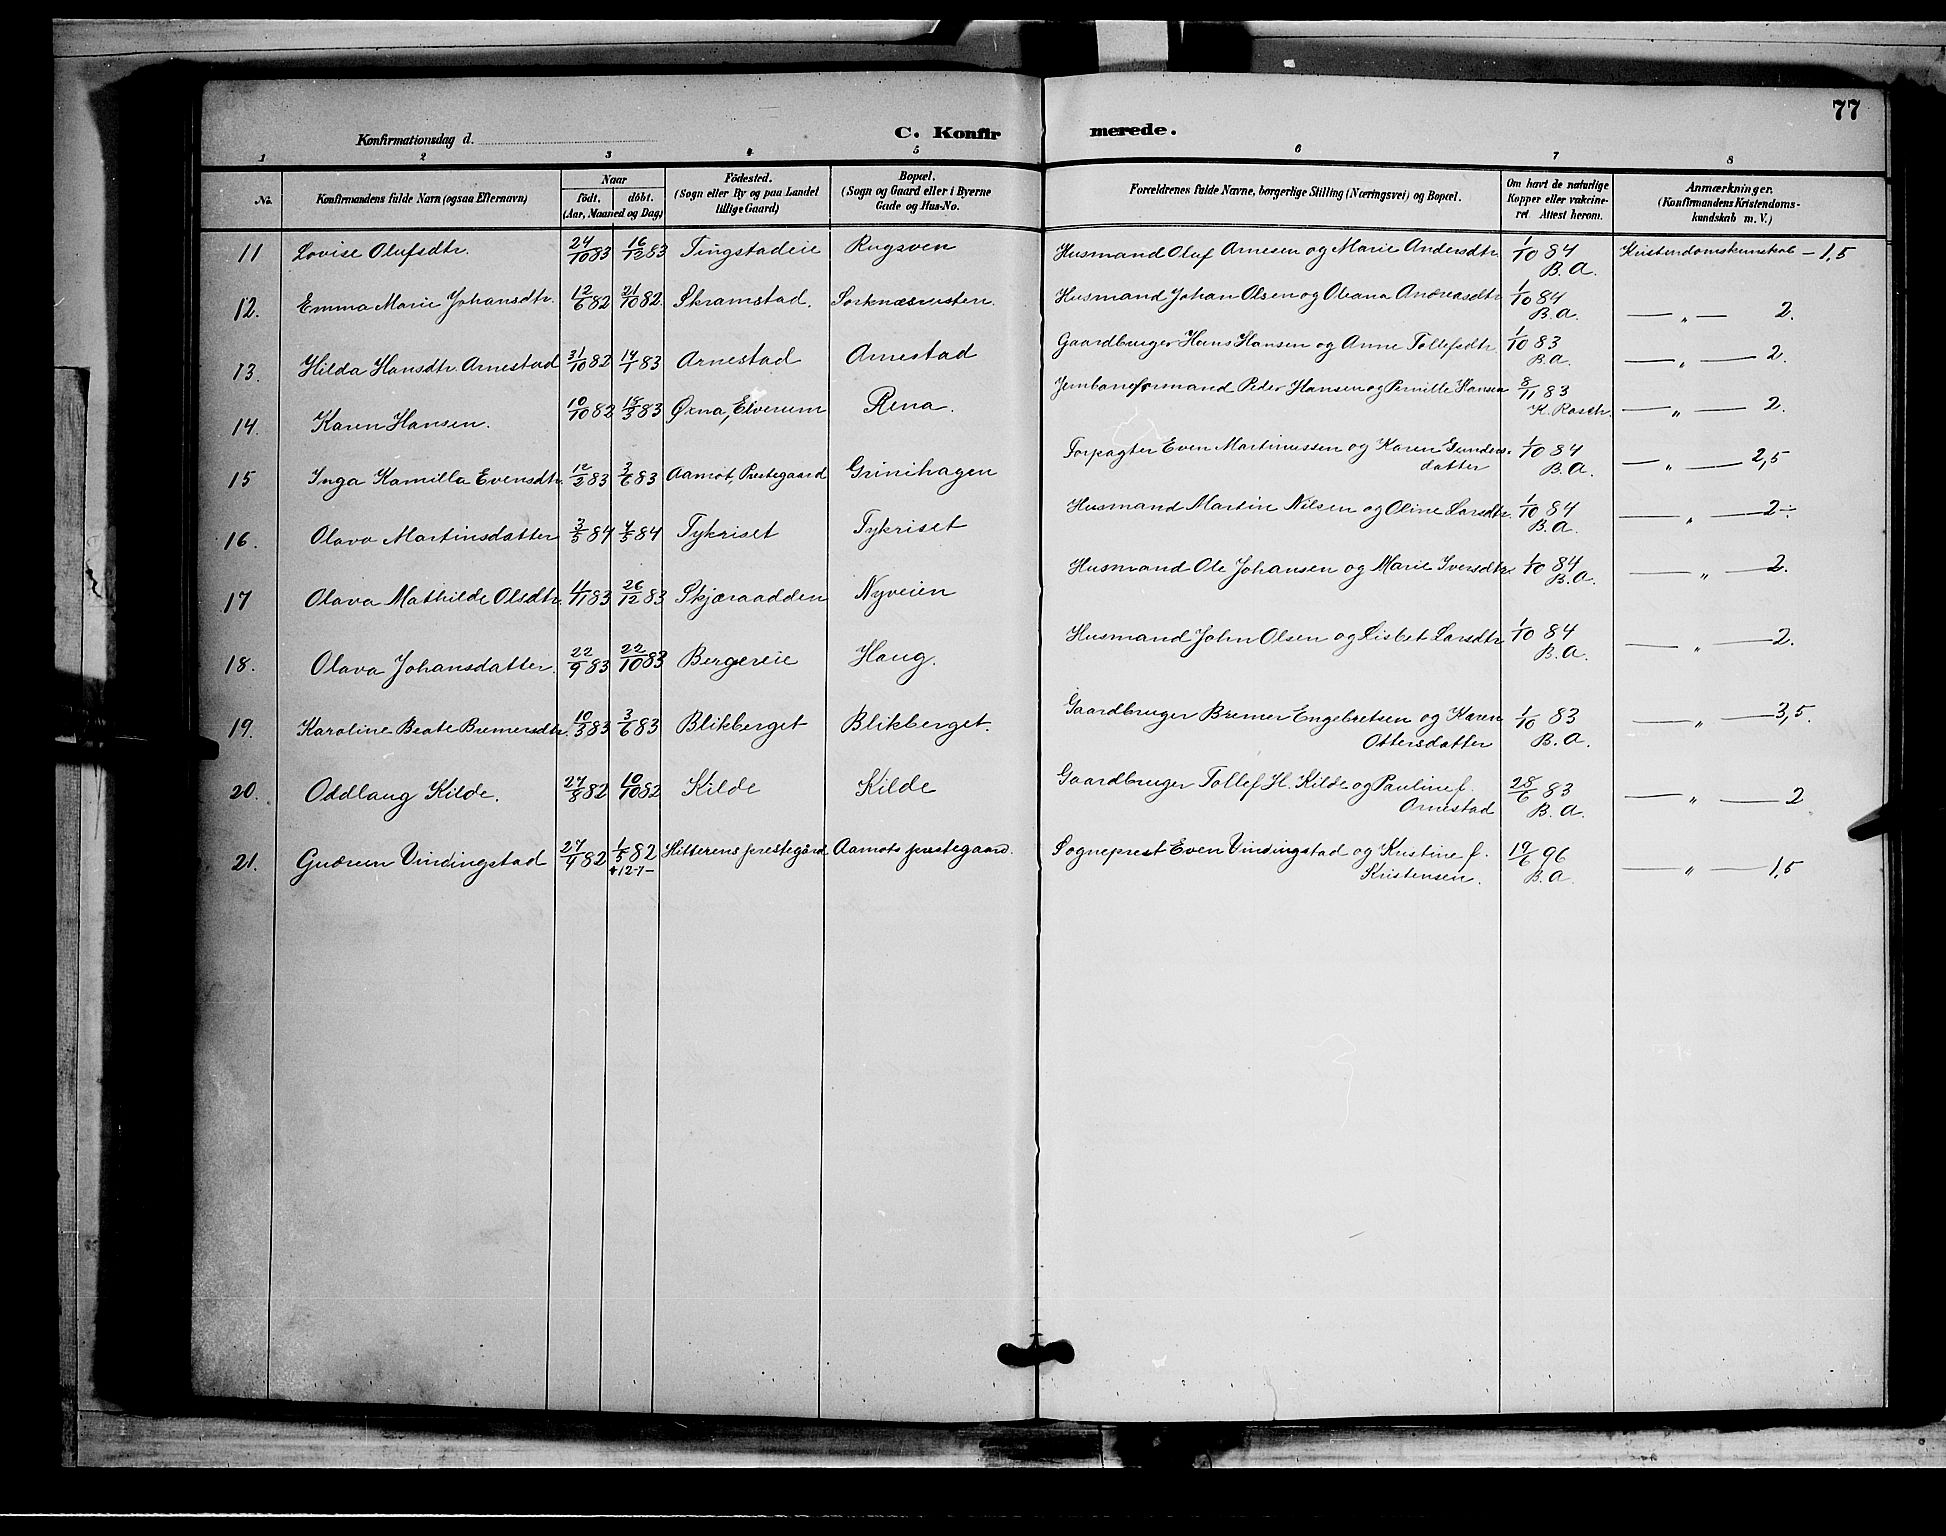 77
Konfirmationsdag d.
C. Konfirmerede.
1 2 3 4 5 6 7 8
No. Konfirmandens fulde Navn (ogsaa Efternavn) Naar født. døbt. (Aar, Maaned og Dag) Fødested. (Sogn eller By og paa Landet tillige Gaard) Bopæl. (Sogn og Gaard eller i Byerne Gade og Hus-No. Forældrenes fulde Navne, borgerlige Stilling (Næringsvei) og Bopæl. Om havt de naturlige Kopper eller vakcineret Attest herom. Anmærkninger. (Konfirmandens Kristendomskundskab m. V.)
11 Lovise Olufsdtr. 24/10 83 16/12 83 Tingstadeie Rugsven Husmand Oluf Arnesen og Marie Andersdtr. 1/10 84 B.A. Kristendomskunskab - 1,5
12. Emma Marie Johansdtr. 12/6 82 21/10 82. Skramstad. Husmand Johan Olsen og Oleana Andreasdtr 1/10 84 B.A. — „ — 2.
13. Hilda Hansdtr. Arnestad 31/10 82 14/1 83 Arnestad Arnestad Gaardbruger Hans Hansen og Anne Tollefsdtr. 1/10 83 B.A. — „ — 2.
14. Karen Hansen. 10/10 82 18/3 83 Øxna, Elverum Rena. Jernbaneformand Peder Hansen og Pernille Hansen 8/11 83 — „ — 2.
15 Inga Kamilla Evensdtr. 12/2 83 3/6 83 Aamot, Prestegaard Grinihagen Forpagter Even Martinussen og Karen Gundersdatter 1/10 84 B.A. — „ — 2,5
16. Olava Martinsdatter 3/3 84 4/5 84 Tykriset Tykriset Husmand Martin Nilsen og Oline Larsdtr. 1/10 84 B.A. — „ — 2÷
17 Olava Mathilde Olsdtr. 4/11 83 26/12 83 Skjæraadden Nyveien Husmand Ole Johansen og Marie Iversdtr. 1/10 84 B.A. — „ — 2.
18. Olava Johansdatter. 22/9 83 22/10 83 Bergereie Haug. Husmand John Olsen og Lisbet Larsdtr. 1/10 84 B.A. — „ — 2.
19. Karoline Beate Bremersdtr. 10/3 83 3/6 83 Blikberget Blikberget. Gaardbruger Bremer Engebretsen og Karen Ottersdatter 1/10 83 B.A. — „ — 3,5.
20. Oddlaug Kilde. 27/8 82 10/10 82 Kilde Kilde Gaardbruger Tollef H. Kilde og Pauline f. Arnestad 28/6 83 B.A. — „ — 2
21. Gudrun Vindingstad 27/4 82 1/5 82 Hitterens prestegård Aamots prestegaard. Sogneprest Even Vindingstad og Kristine f. Kristensen. 19/6 96 B.A. — „ — 1,5